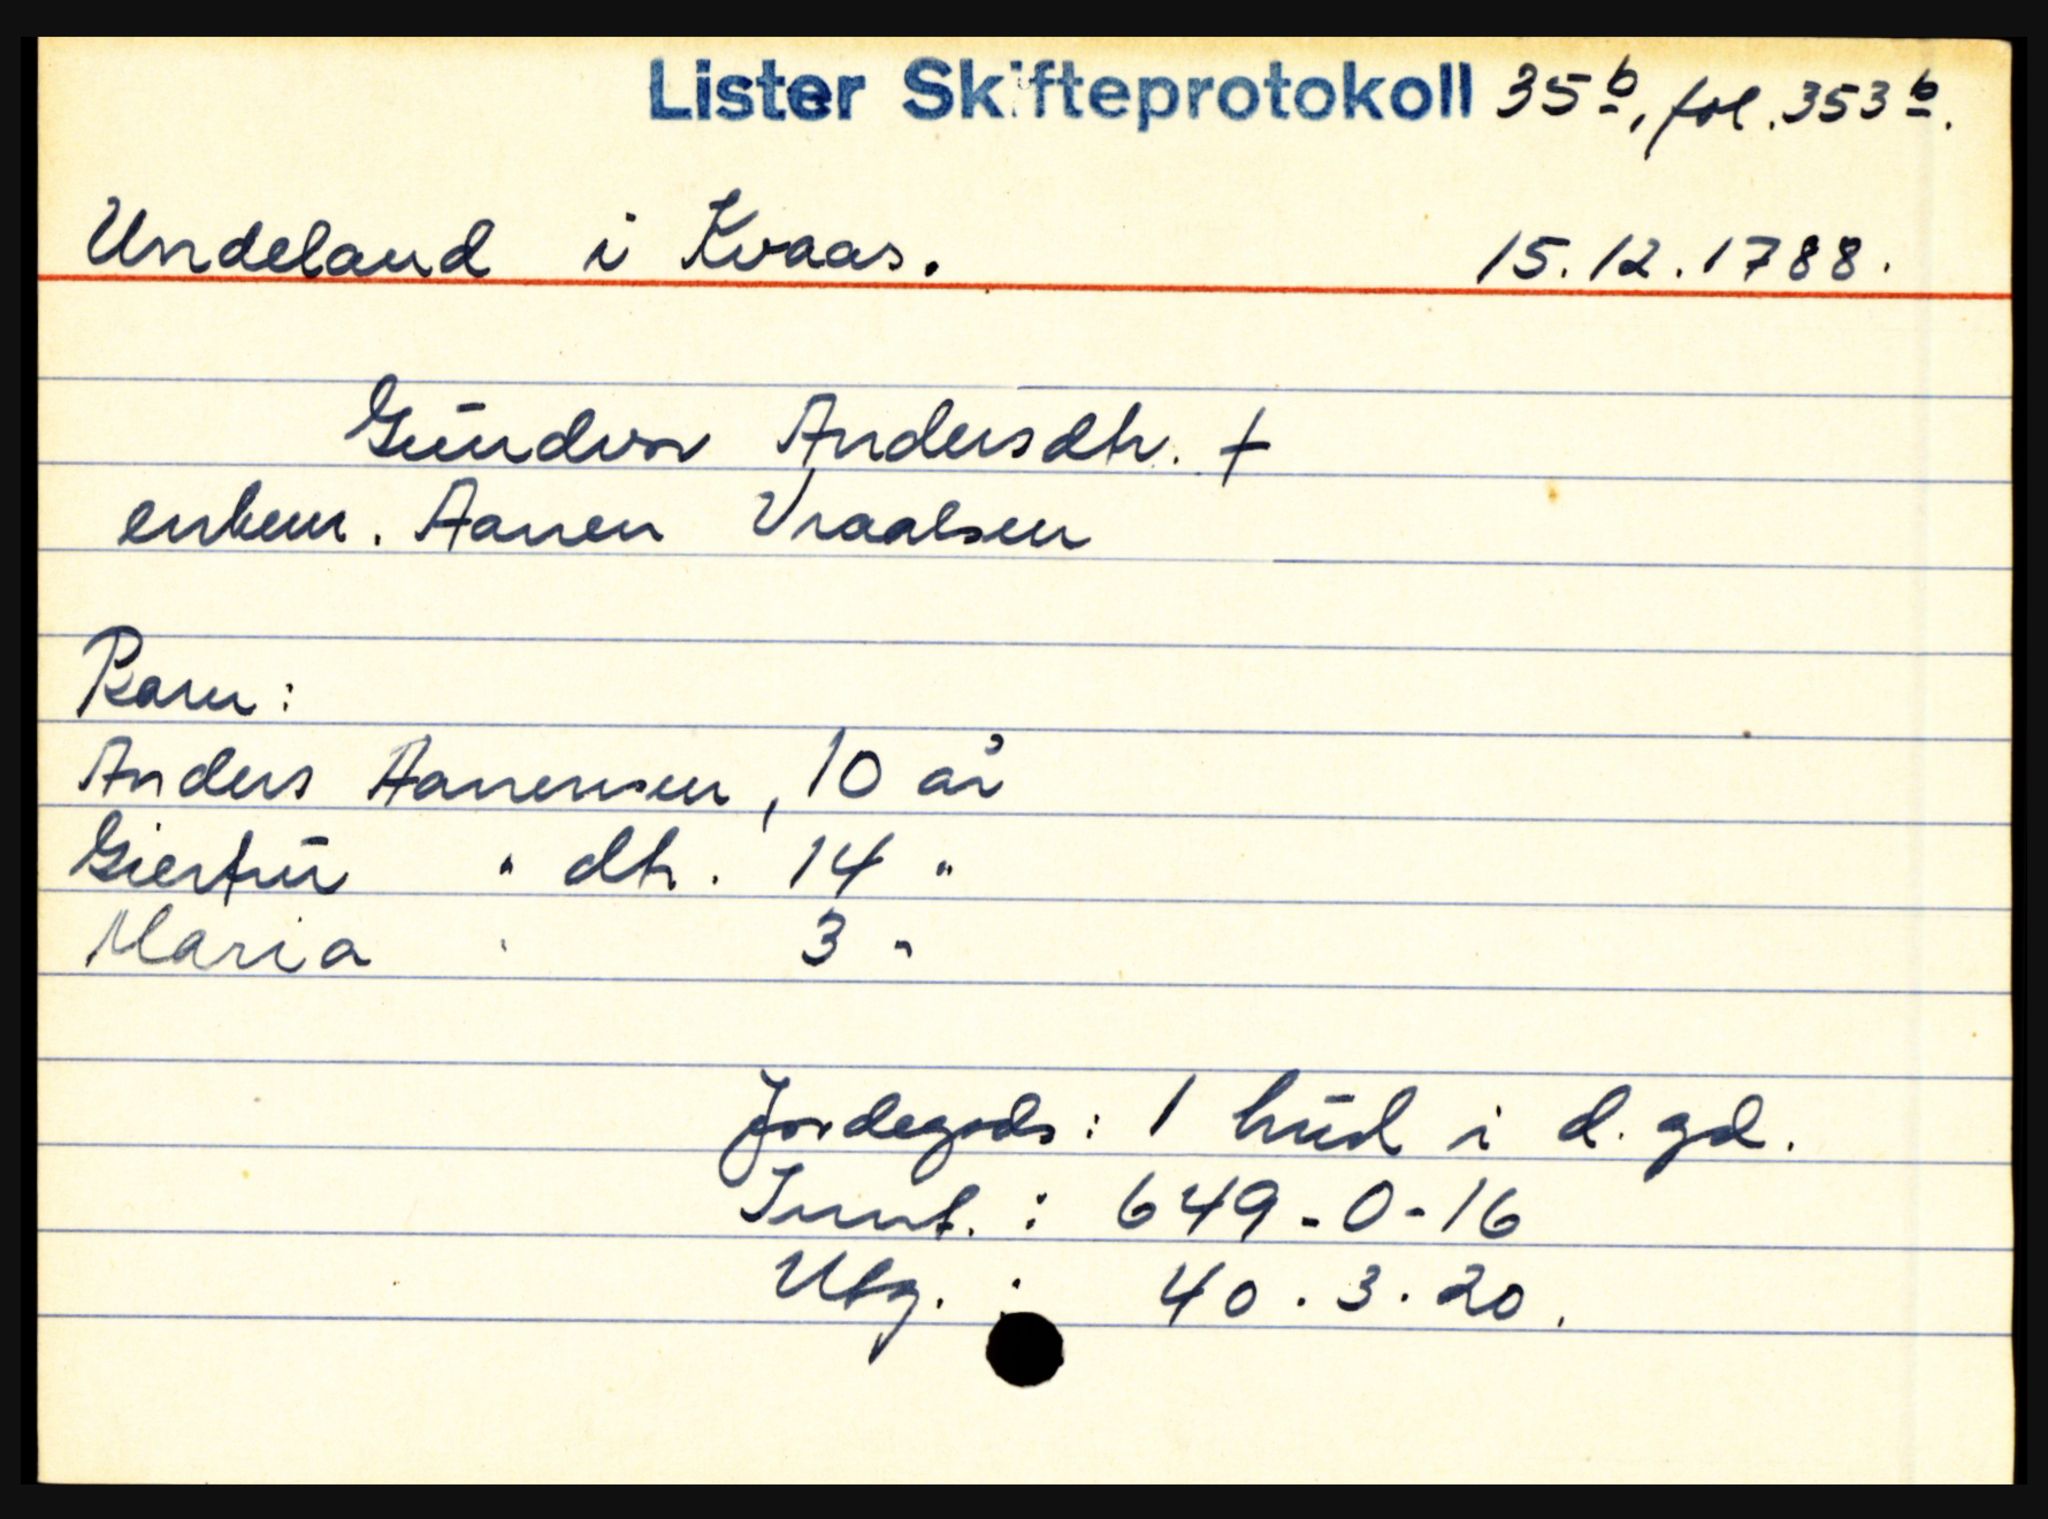 Lister Skifteprotokoll 35b, fol. 353b.
Undeland i Kvaas. 15.12.1788.
Gundvor Andersdtr. +
enkem. Aanen Vraalsen
Barn:
Anders Aanensen, 10 år
Giertru " dtr. 14 "
Maria " 3 "
Jordegods: 1 hud i d. gd.
Innt. : 649-0-16
Utg. : 40.3.20.